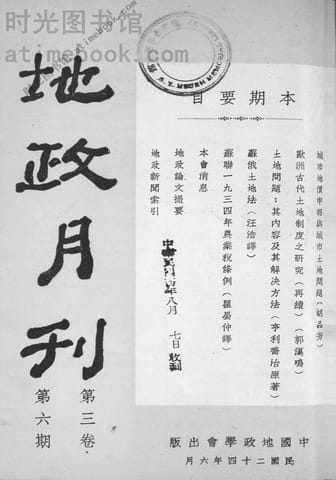 时光图书馆
atimebook.com
地政月刊
第三卷·
第六期
本期要目
城市地價申報與城市土地問題(胡品芳)
歐洲古代土地制度之研究(再續)(郭漢鳴)
土地問題:其內容及其解决方法(亨利喬治原著)
蘇俄土地法(汪浩譯)
蘇聯一九三四年農業稅條例(瞿晏仲譯)
本會消息
地政論文撮要
地政新聞索引
八月
七日 收到
中國地政學會出版
民國二十四年六月